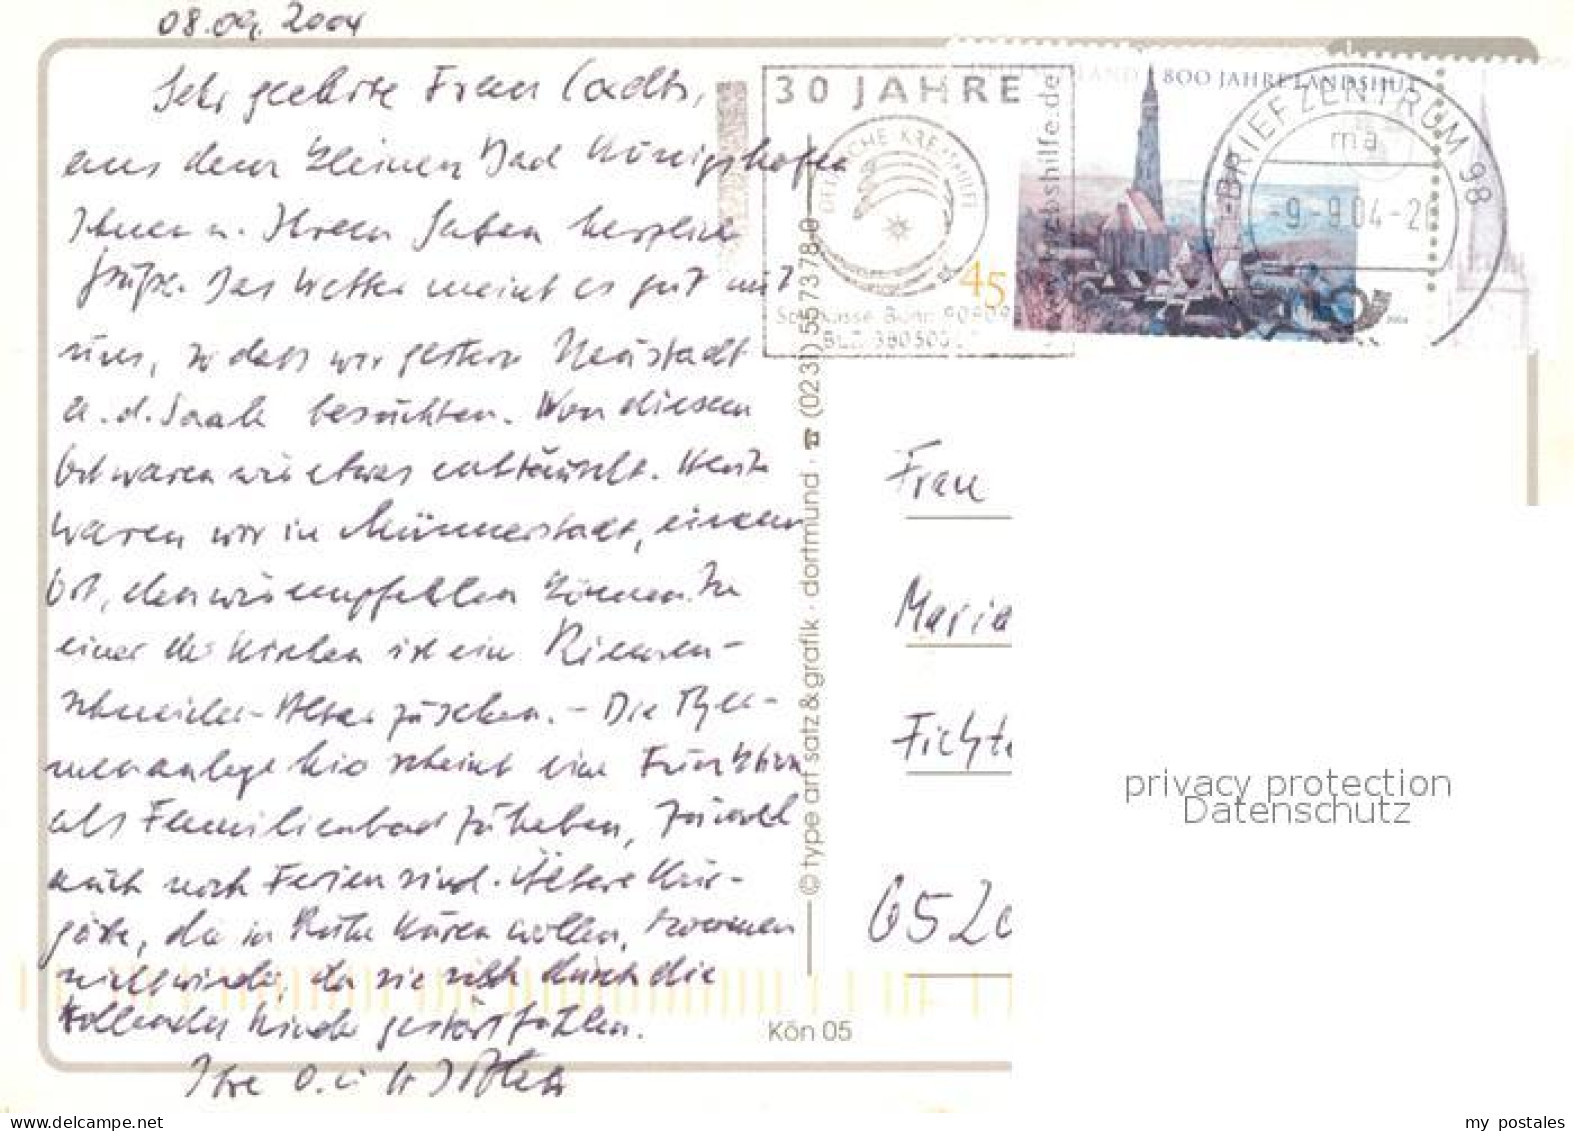 08.09.2004
Sehr geehrte Frau
aus dem kleinen Bad Königshofen
Ihnen u. Ihrem Sohn herzliche
Grüße. Das Wetter meint es gut mit
uns, so dass wir gestern Neustadt
a. d. Saale besuchten. Von diesem
Ort waren wir etwas enttäuscht. Heute
waren wir in Münnerstadt, einem
Ort, den wir empfehlen können. In
einer der Kirchen ist ein Riemen-
schneider-Altar zu sehen. – Die Ther-
menanlage hier scheint eine Funktion
als Familienbad zu haben, zumal
auch noch Ferien sind. Ältere Kur-
gäste, die in Ruhe kuren wollen, kommen
nicht wieder, da sie sich durch die
tollenden Kinder gestört fühlen.
Ihre
30 JAHRE
DEUTSCHE KREBSHILFE
krebshilfe.de
Sparkasse Bonn 909093
BLZ 380500
DEUTSCHLAND
800 JAHRE LANDSHUT
45
2004
BRIEFZENTRUM 98
ma
-9.-9.04-2
© type art satz & grafik · dortmund · ☎ (0231) 557378-0
Frau
Maria
Fichte
6520
Kön 05
privacy protection
Datenschutz
my postales